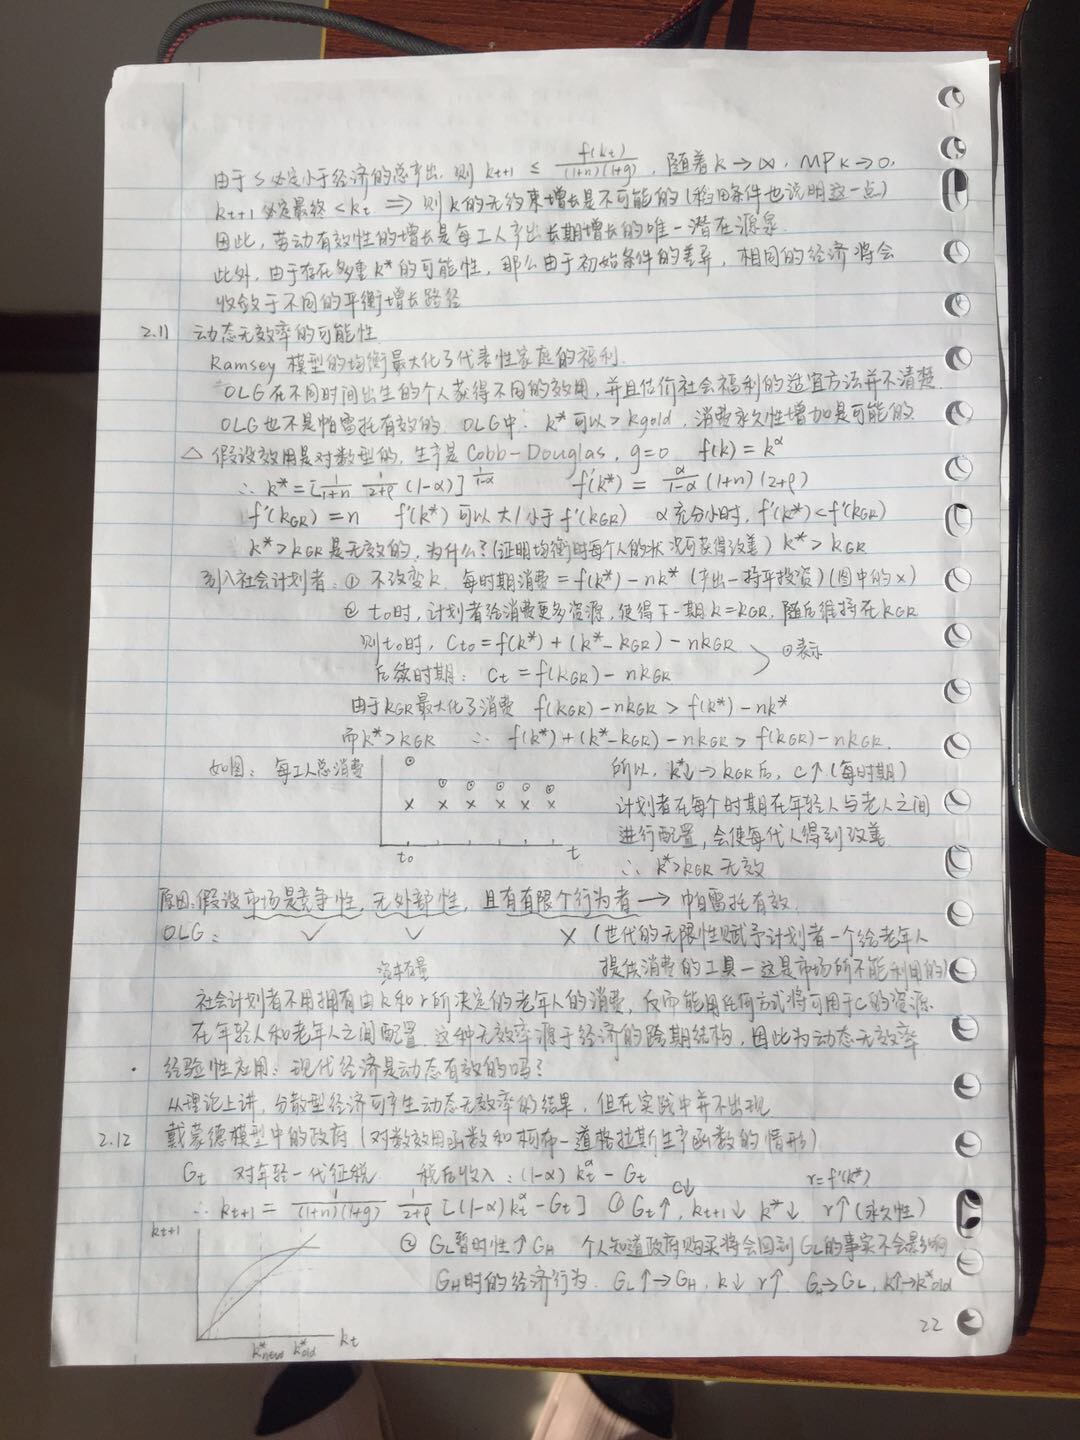 由于S必定小于经济的总产出,则 kt+1 ≤ f(kt)/(1+n)(1+g),随着k→∞,MPk→0,
kt+1必定最终<kt ⟹ 则k的无约束增长是不可能的(稻田条件也说明这一点)
因此,劳动有效性的增长是每工人产出长期增长的唯一潜在源泉.
此外,由于存在多重k*的可能性,那么由于初始条件的差异,相同的经济将会
收敛于不同的平衡增长路径
2.11 动态无效率的可能性
Ramsey 模型的均衡最大化了代表性家庭的福利.
OLG在不同时间出生的个人获得不同的效用,并且估价社会福利的适宜方法并不清楚.
OLG也不是帕雷托有效的. OLG中: k*可以>kgold,消费永久性增加是可能的
△ 假设效用是对数型的,生产是Cobb-Douglas, g=0 f(k)=k^α
∴ k*=[1/(1+n) 1/(2+ρ) (1-α)]^(1/(1-α)) f'(k*)= α/(1-α) (1+n)(2+ρ)
f'(kGR)=n f'(k*)可以大/小于f'(kGR) α充分小时,f'(k*)<f'(kGR)
k*>kGR是无效的,为什么?(证明均衡时每个人的状况可获得改善) k*>kGR
引入社会计划者:① 不改变k,每时期消费=f(k*)-nk* (产出-持平投资)(图中的x)
② t0时,计划者给消费更多资源,使得下一期k=kGR,随后维持在kGR
则t0时, Ct0=f(k*)+(k*-kGR)-nkGR
后续时期: Ct=f(kGR)-nkGR ⊙表示
由于kGR最大化了消费 f(kGR)-nkGR > f(k*)-nk*
而k*>kGR ∴ f(k*)+(k*-kGR)-nkGR > f(kGR)-nkGR.
如图: 每工人总消费
t0 t
所以, k*↓→kGR后, C↑(每时期)
计划者在每个时期在年轻人与老人之间
进行配置,会使每代人得到改善
∴ k*>kGR无效
原因:假设市场是竞争性,无外部性,且有有限个行为者→帕雷托有效.
OLG: ✓ ✓ ✗ (世代的无限性赋予计划者一个给老年人
提供消费的工具-这是市场所不能利用的)
资本存量
社会计划者不用拥有由k和r所决定的老年人的消费,反而能用任何方式将可用于C的资源
在年轻人和老年人之间配置.这种无效率源于经济的跨期结构,因此为动态无效率
· 经验性应用:现代经济是动态有效的吗?
从理论上讲,分散型经济可产生动态无效率的结果,但在实践中并不出现
2.12 戴蒙德模型中的政府(对数效用函数和柯布-道格拉斯生产函数的情形)
Gt 对年轻一代征税 税后收入:(1-α)kt^α-Gt r=f'(k*)
∴ kt+1= 1/(1+n)(1+g) 1/(2+ρ) [(1-α)kt^α-Gt] ① Gt↑, C↓ kt+1↓ k*↓ r↑(永久性)
② GL暂时性↑GH 个人知道政府购买将会回到GL的事实不会影响
GH时的经济行为. GL↑→GH, k↓ r↑ GH→GL, k↑→k*old
kt+1
k*new k*old kt
22